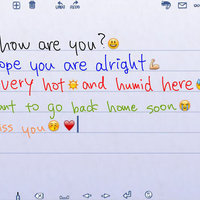 how are you?😃
ope you are alright💪
very hot☀️and humid here
ant to go back home soon😭
iss you😚❤️